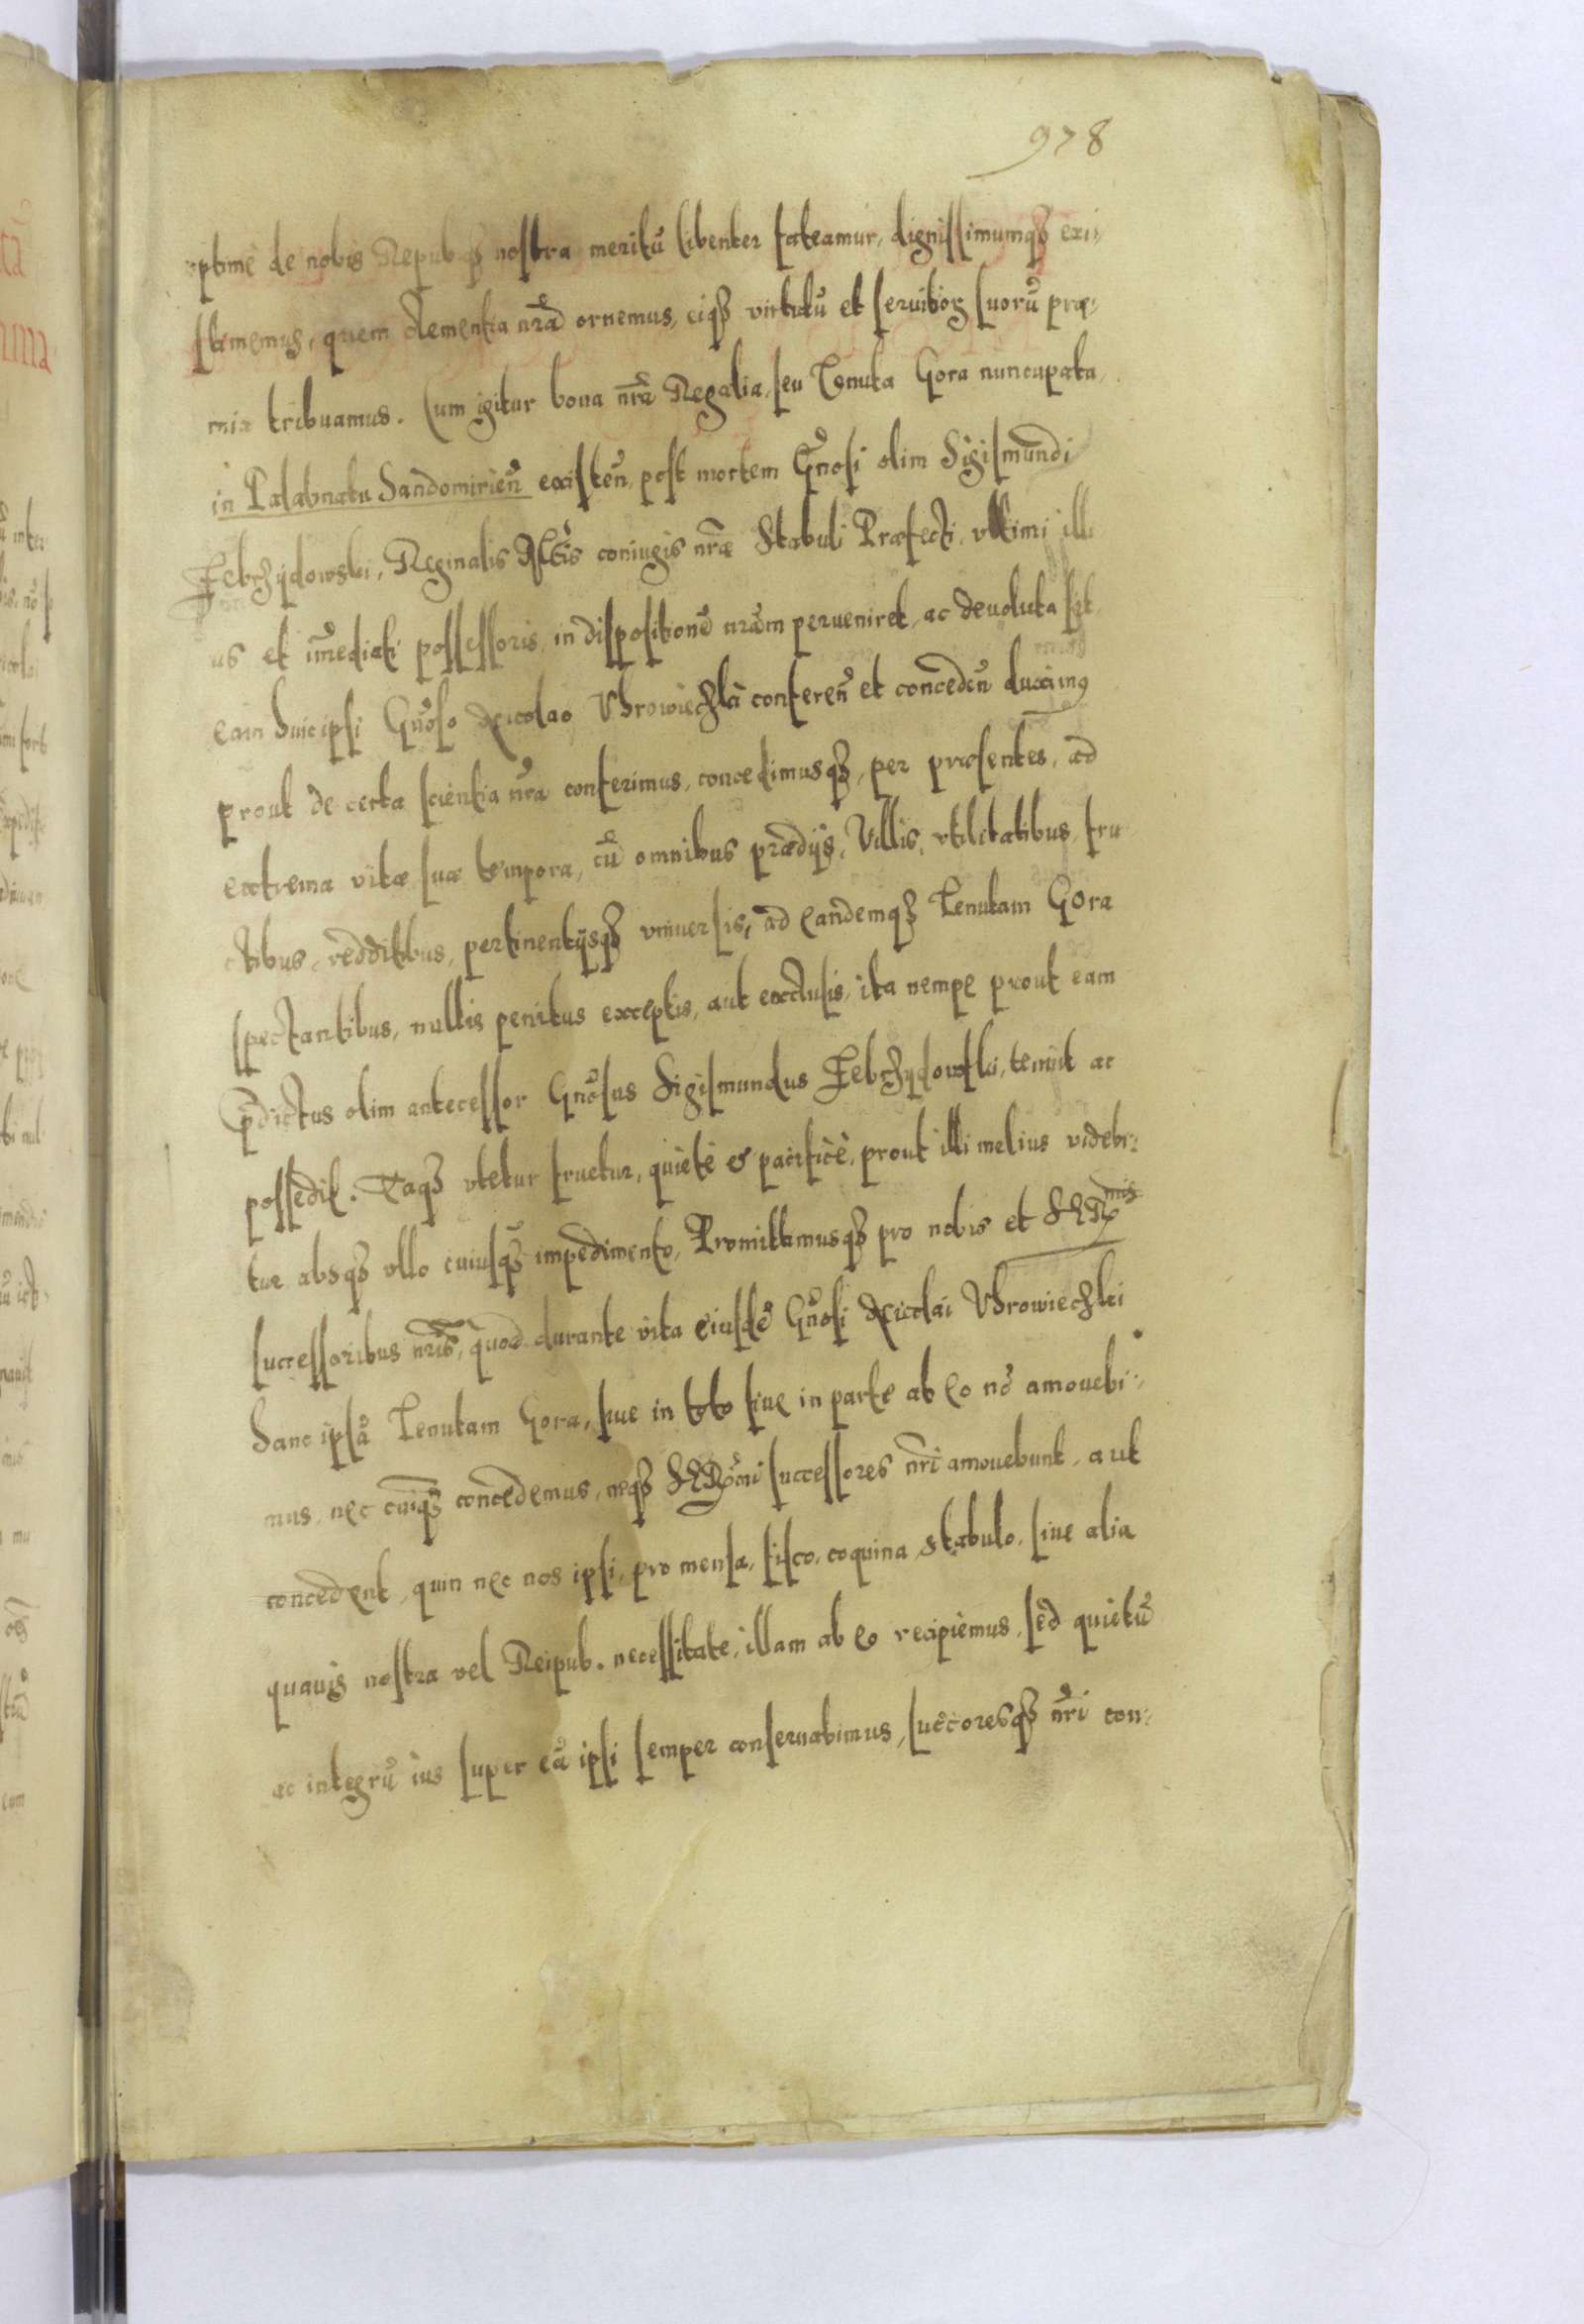 978
optime de nobis Repubq₃ nostra meritũ libenter fateamur, dignissimumq₃ exi-
stimemus, quem clementia nr̃a ornemus, eiq₃ virtutũ et seruitioꝝ suorũ præ-
mia tribuamus. Cum igitur bona nr̃a Regalia, seu Tenuta Gora nuncupata,
in Palatinatu Sandomirień existeñ, post mortem Gñosi olim Sigismundi
Zebrzÿdowski, Reginalis Mtĩs coniugis nr̃æ Stabuli Præfecti, vltimi illi
us et im̃ediati possessoris, in dispositionẽ nr̃am perueniret, ac deuoluta sit
eam huic ipsi Gñoso Nicolao Vhrowieczki confereñ et concedeñ duximꝰ
prout de certa scientia nr̃a conferimus, concedimusq₃, per præsentes, ad
extrema vitæ suæ tempora, cũ omnibus prædijs, Villis, vtilitatibus, fru
ctibus, redditibus, pertinentijsq₃ vniuersis, ad eandemq₃ Tenutam Gora
spectantibus, nullis penitus exceptis, aut exclusis, ita nempe prout eam
p̃dictus olim antecessor Gñosus Sigismundus Zebrzydowski, tenuit ac
possedit. Eaq₃ vtetur fruetur, quietè & pacificè, prout illi melius videbi-
tur absq₃ vllo cuiusq₃ impedimento, Promittimusq₃ pro nobis et SERmis
successoribus nr̃is, quod durante vita eiusdẽ Gñosi Nicolai Vhrowieczki
hanc ipsã Tenutam Gora, siue in toto siue in parte ab eo nõ amouebi-
mus, nec cuiq₃ concedemus, neq₃ SERmi successores nr̃i amouebunt, aut
concedent, quin nec nos ipsi, pro mensa, fisco, coquina, stabulo, siue alia
quauis nostra vel Reipub. necessitate, illam ab eo recipiemus, sed quietũ
ac integrũ ius super eã ipsi semper conseruabimus, succ̃oresq₃ nr̃i con-